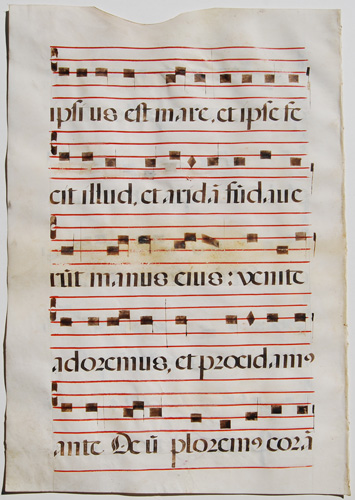 ipsius est mare, et ipse fe
cit illud, et aridā fūdaue
rūt manus eius: venite
adoremus, et procidamꝰ
ante Deū ploremꝰ corā